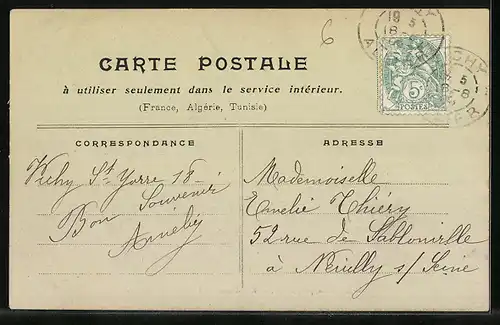 6
CARTE POSTALE
à utiliser seulement dans le service intérieur.
(France, Algérie, Tunisie)
5
POSTES
CORRESPONDANCE
Vichy St Yorre 18-
Bon Souvenir
ADRESSE
Mademoiselle
Emelie Thiéry
52 rue de Sablonville
à Neuilly s/ Seine